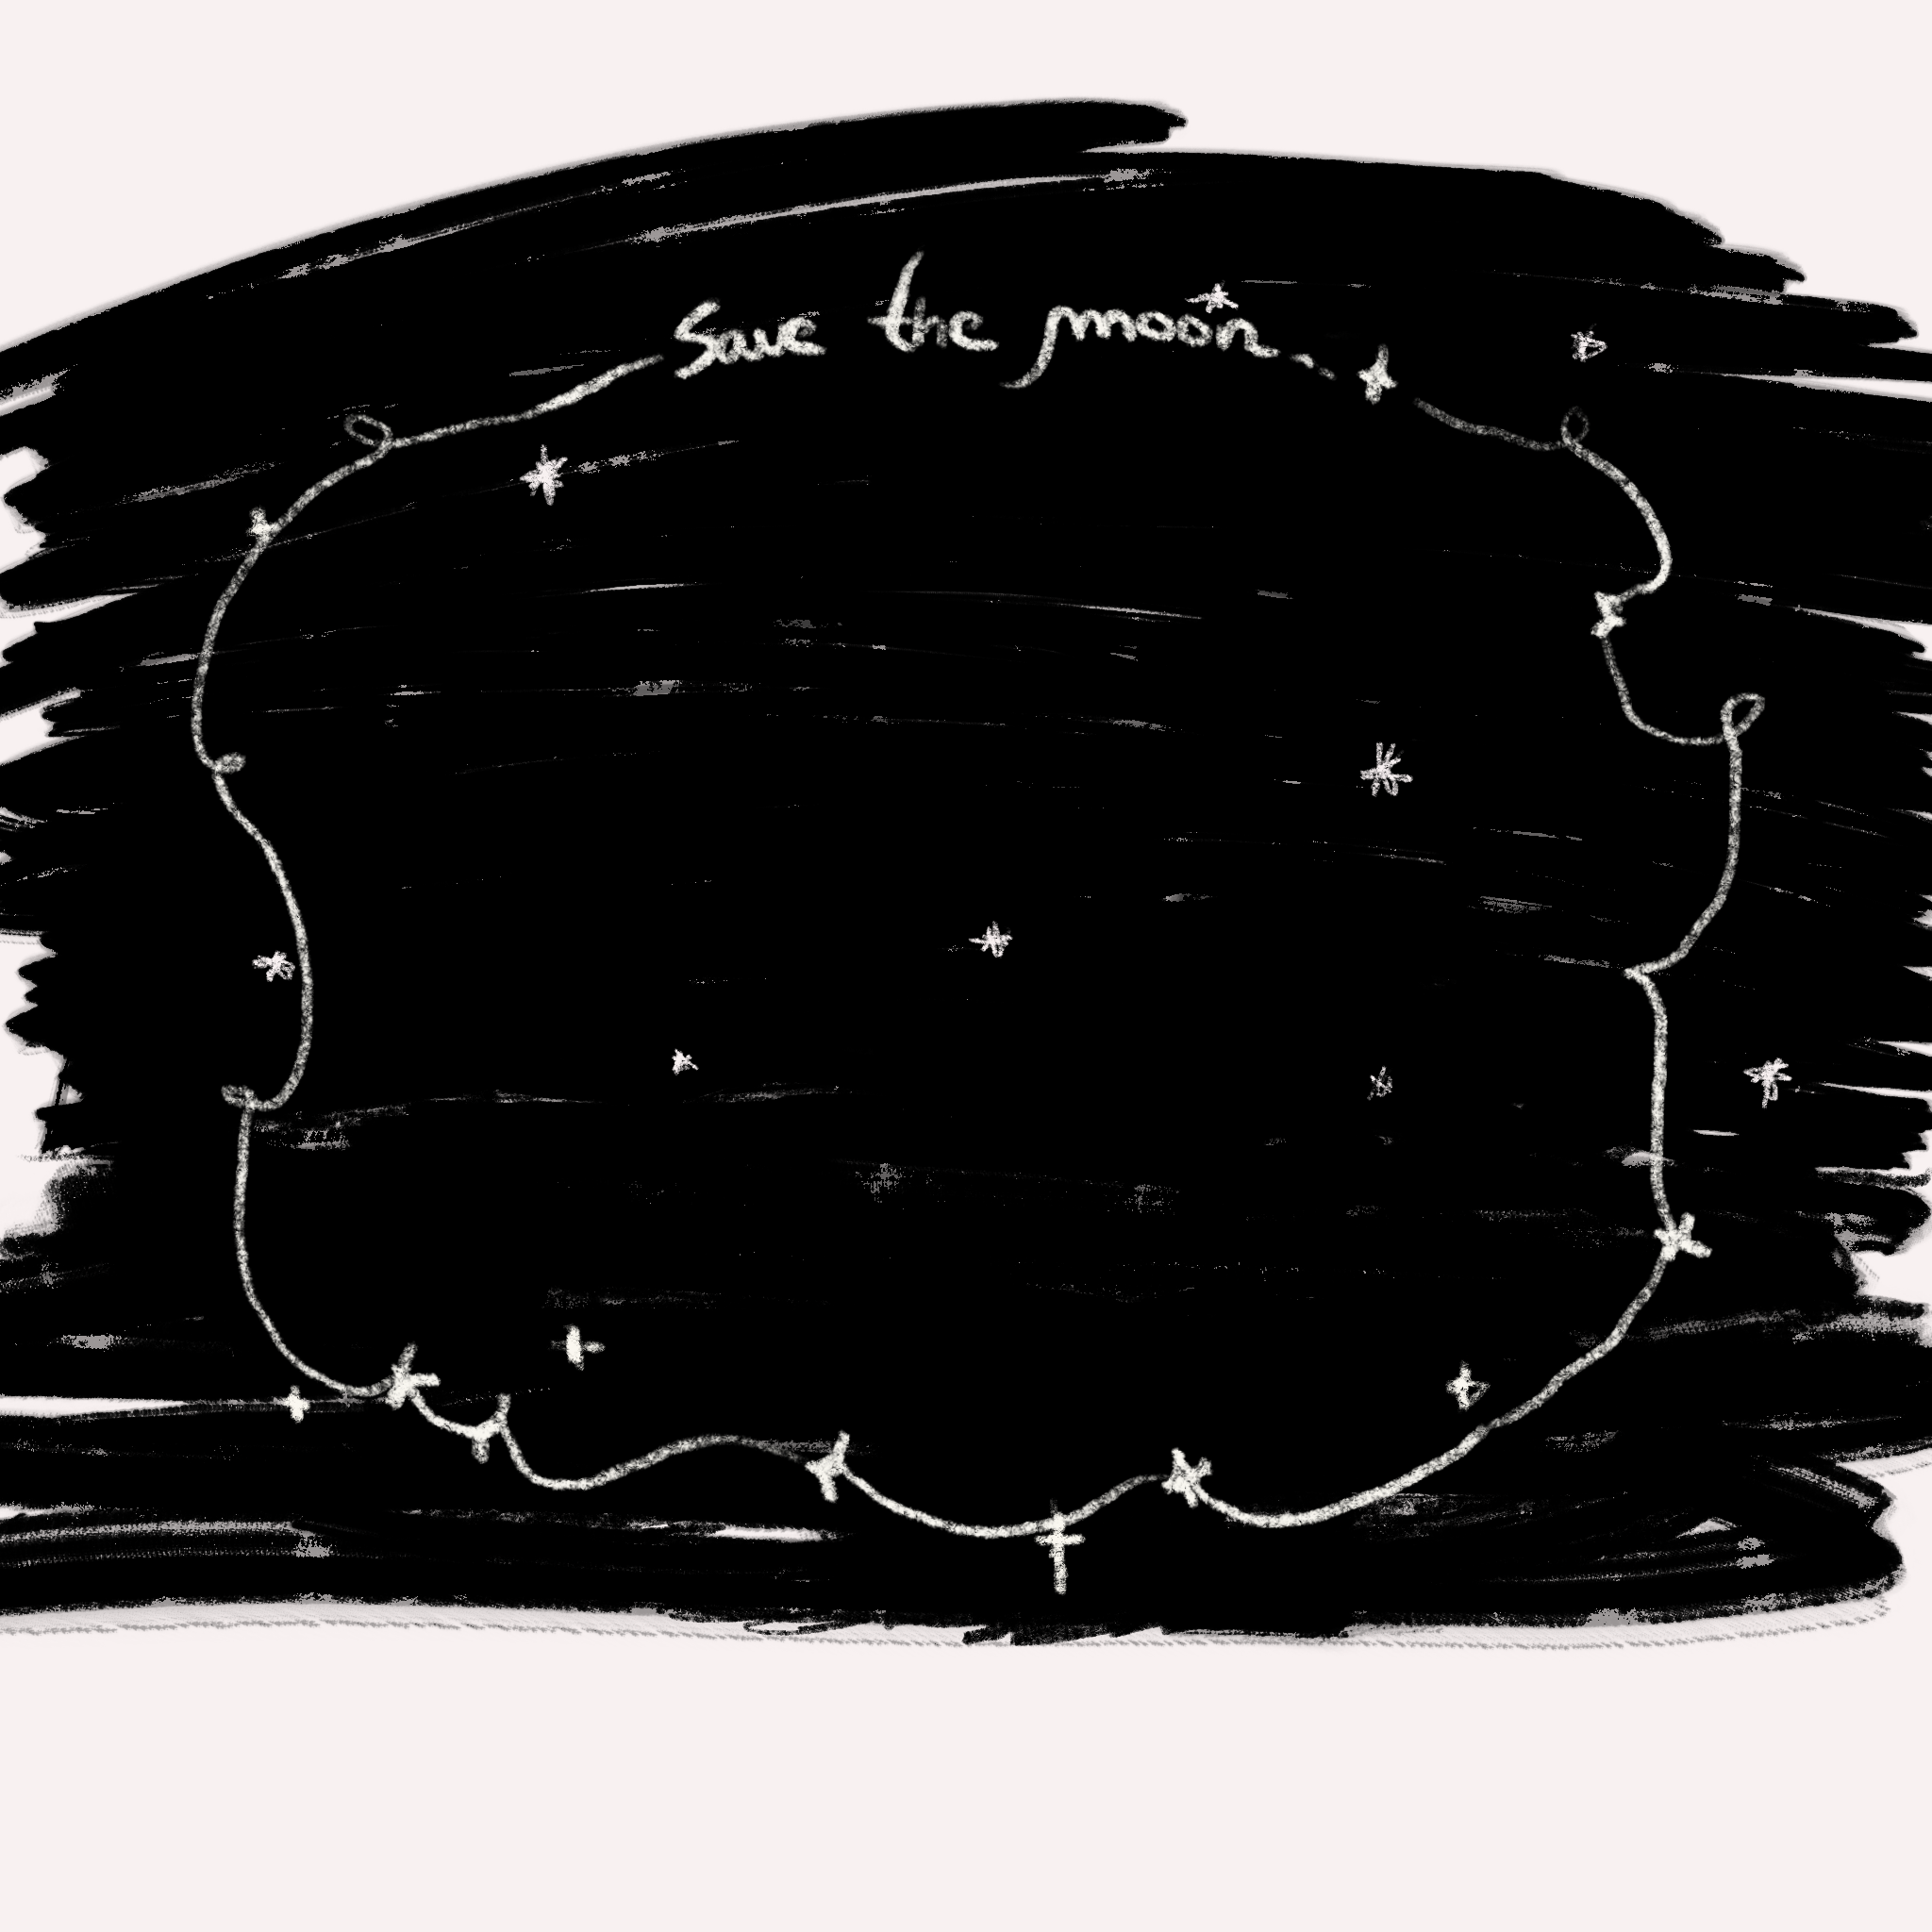 Save the moon